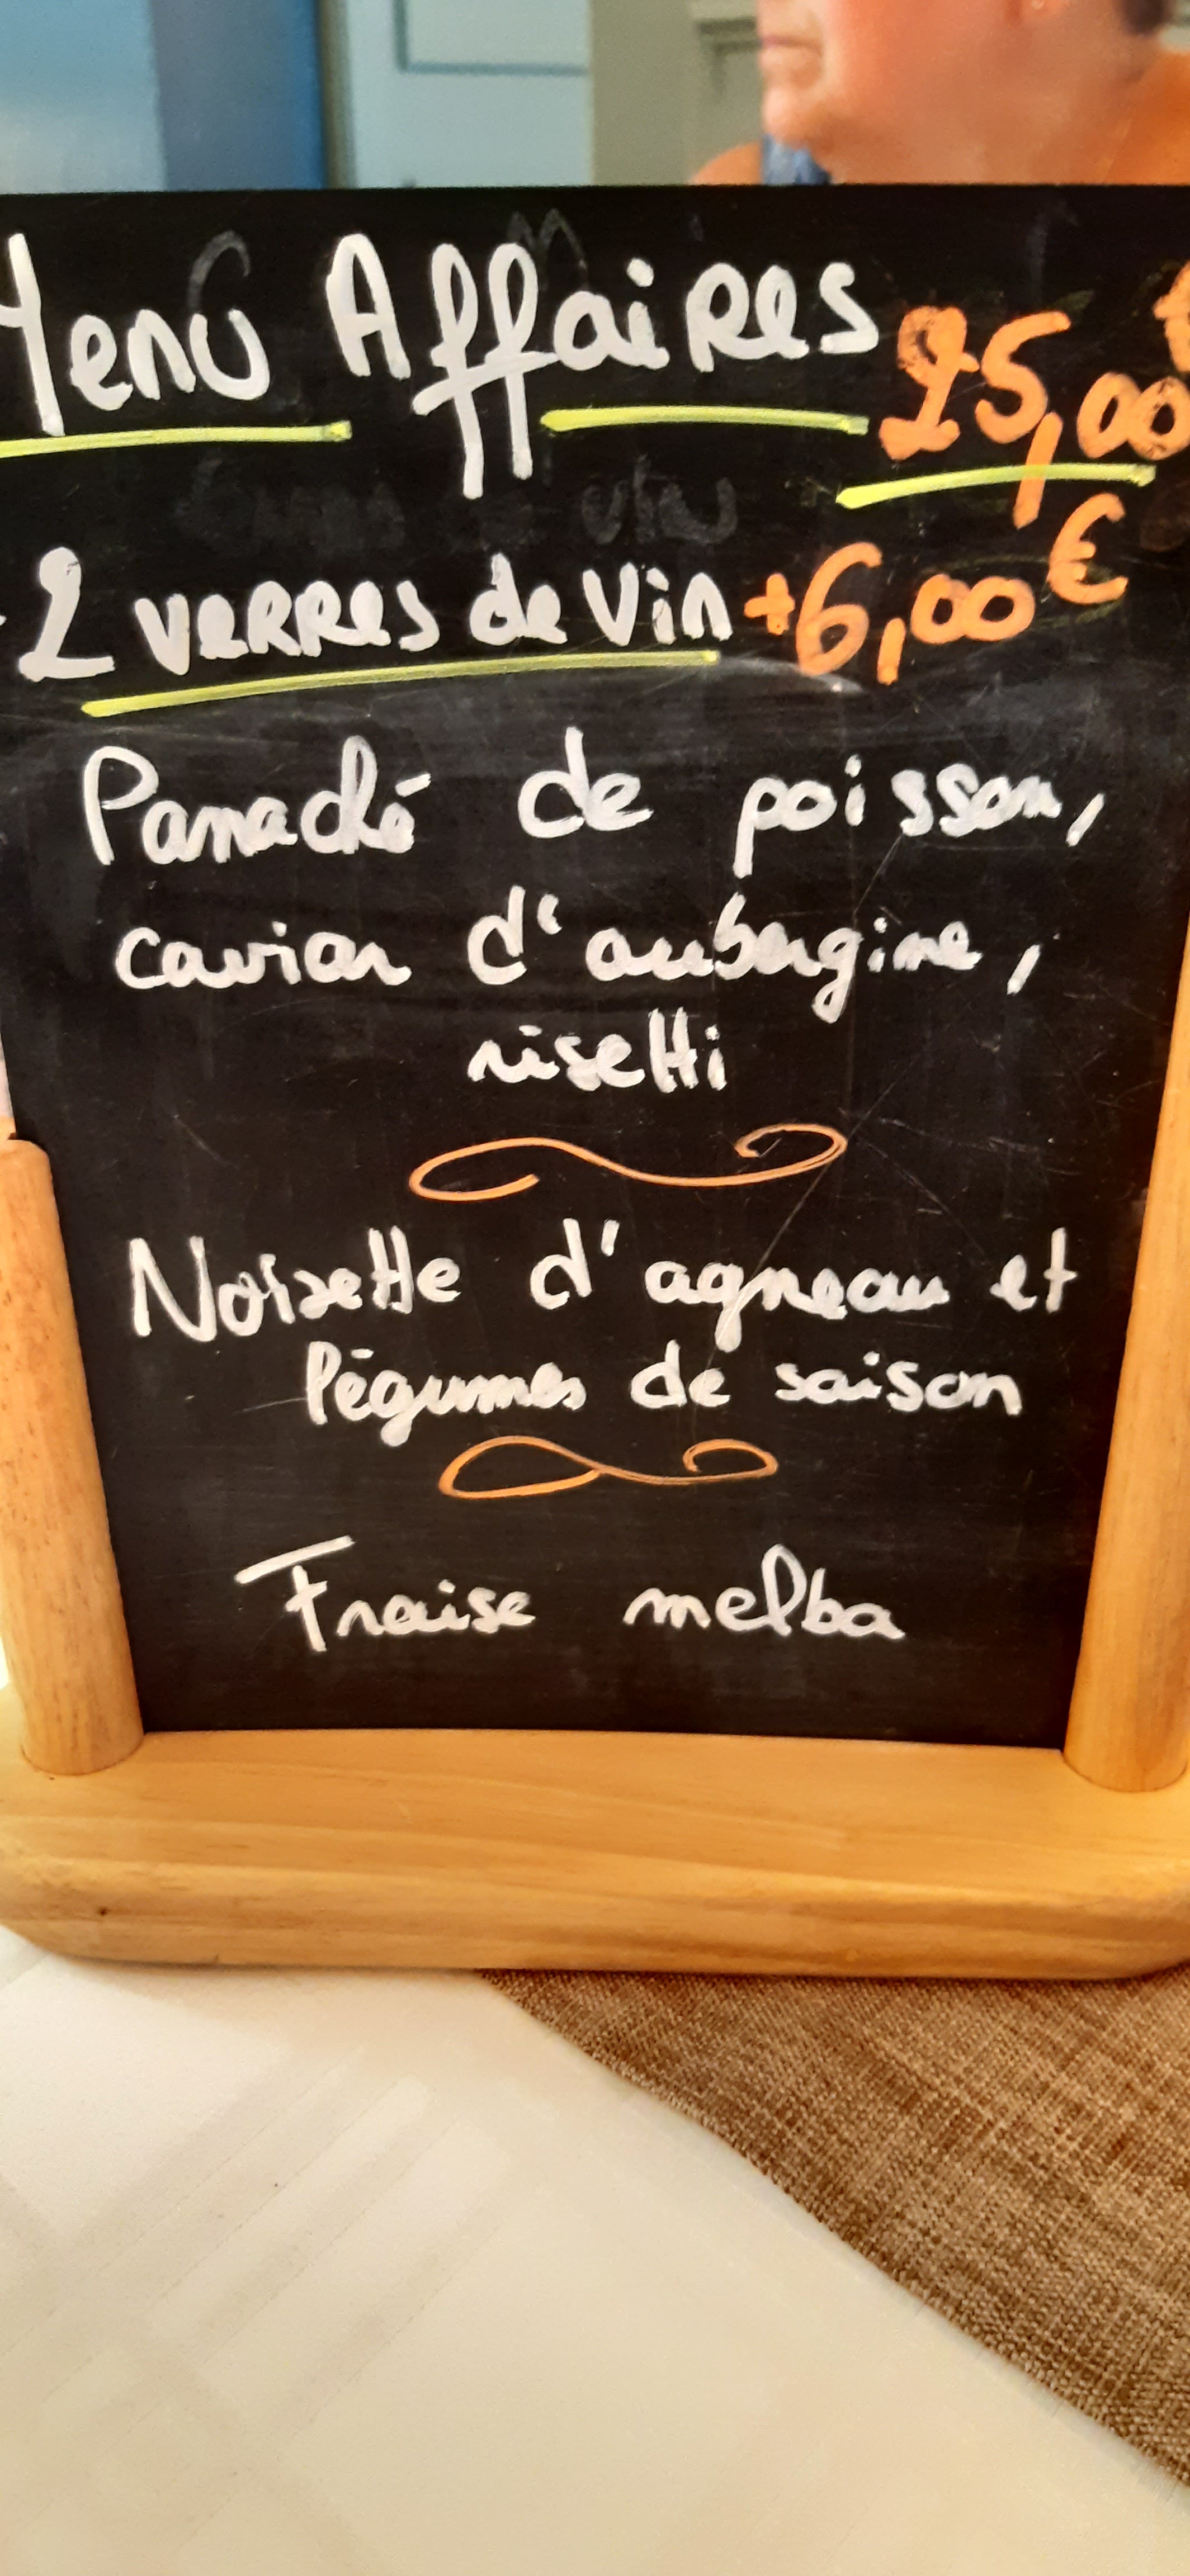 Menu Affaires 25,00€
2 verres de vin +6,00€
Panaché de poisson,
caviar d'aubergine,
risetti
Noisette d'agneau et
légumes de saison
Fraise melba